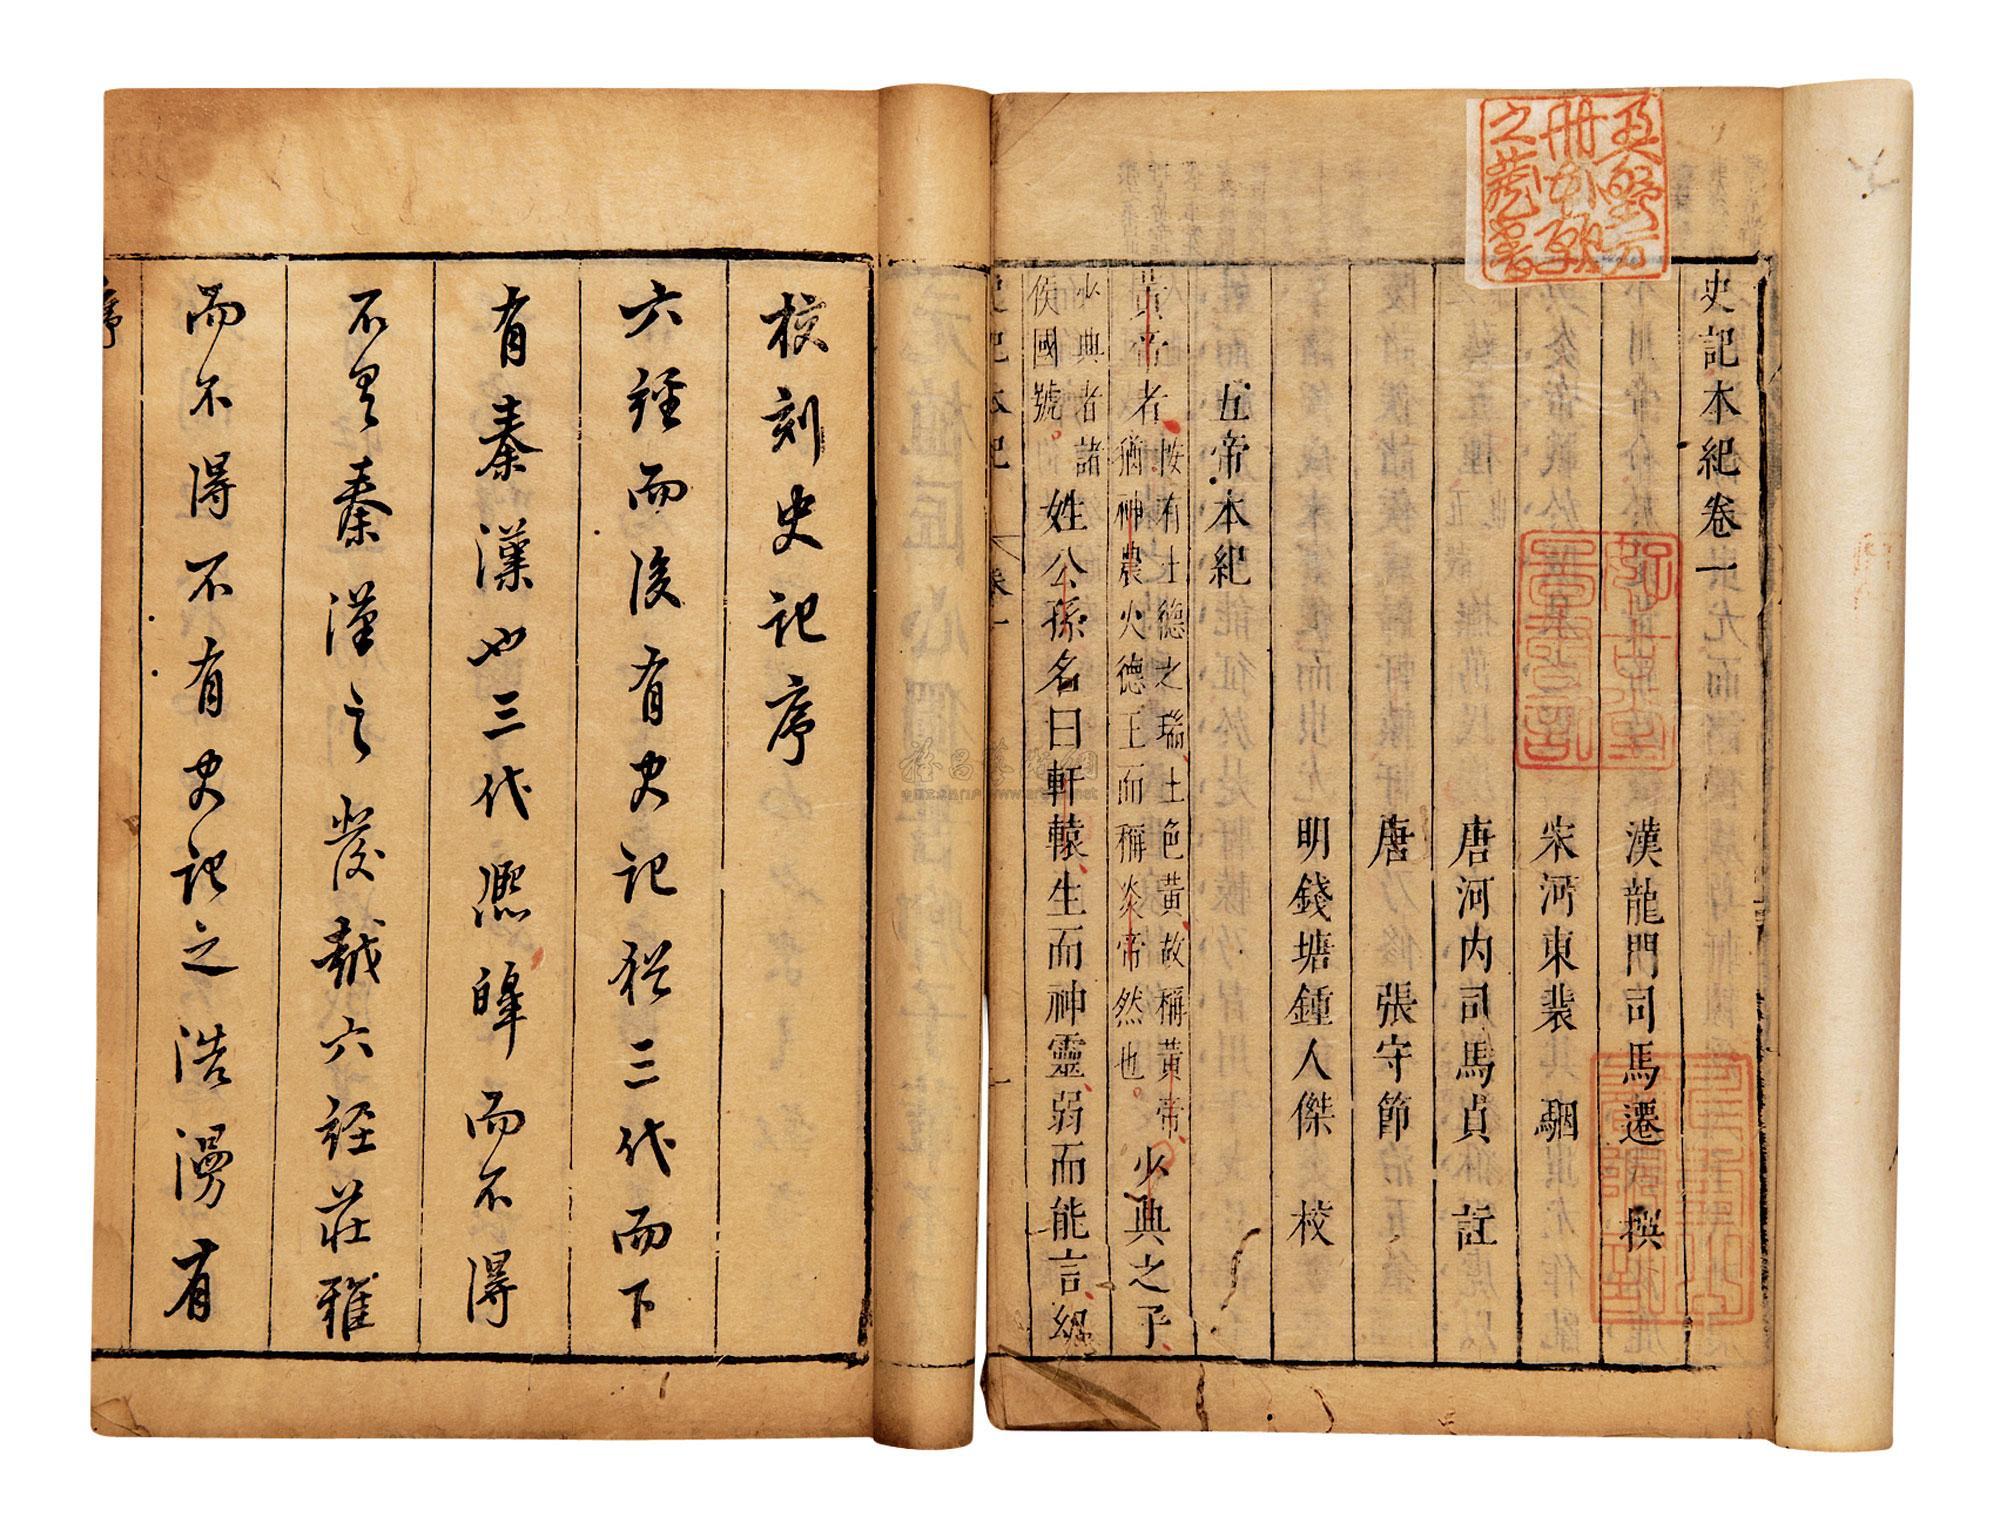 史記本紀卷一
漢龍門司馬遷撰
宋河東裴駰
唐河内司馬貞註
唐張守節
明錢塘鍾人傑校
五帝本紀
黃帝者
按有土德之瑞土色黃故稱黃帝
猶神農火德王而稱炎帝然也
少典之子
少典者諸
侯國號
姓公孫名曰軒轅生而神靈弱而能言
史記本紀 卷一
校刻史記序
六經而後有史記猶三代而下
有秦漢也三代熈皥而不得
不異秦漢之發越六經莊雅
而不得不有史記之浩漫有
序